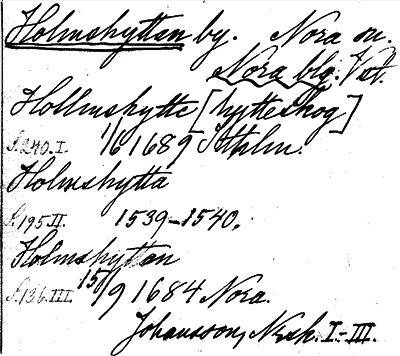 Holmshyttan by. Nora sn.
Nora blg. Vstl.
Hollmshytte [hytteskog]
S.240.I. 1/6 1689 Sthlm.
Holmshytta
S.195.II. 1539-1540.
Holmshyttan
S.136.III. 15/9 1684 Nora.
Johansson, Nrsk. I.-III.